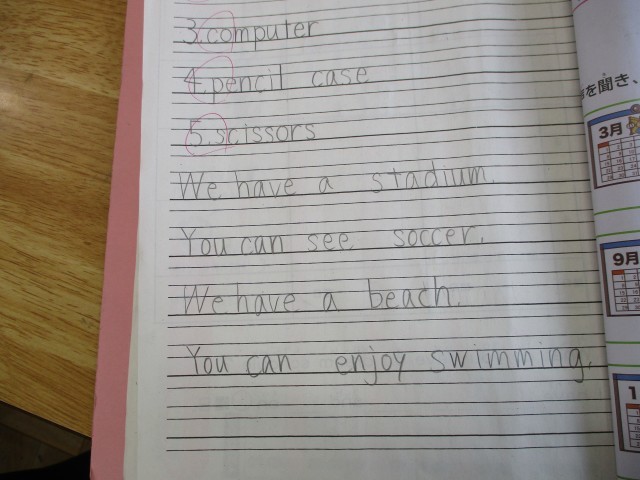 3.computer
4.pencil case
5.scissors
We have a stadium.
You can see soccer.
We have a beach.
You can enjoy swimming.
を聞き、
3月
9月
1